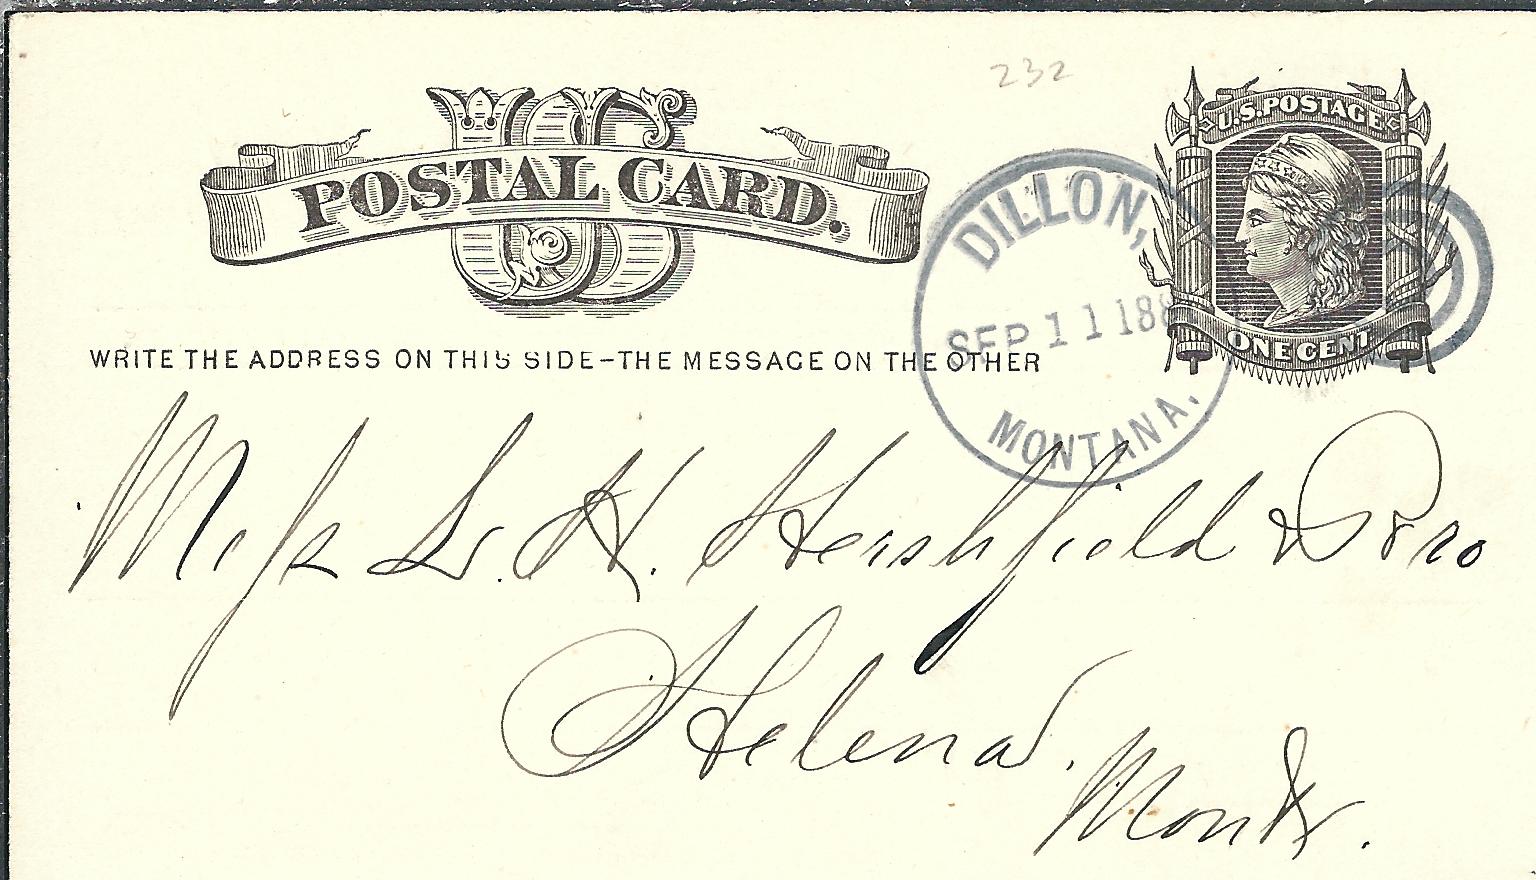 232
US
POSTAL CARD.
U.S. POSTAGE
ONE CENT
DILLON,
SEP 11 188
MONTANA.
WRITE THE ADDRESS ON THIS SIDE–THE MESSAGE ON THE OTHER
Mess L. H. Hershfield & Bro
Helena.
Mont.